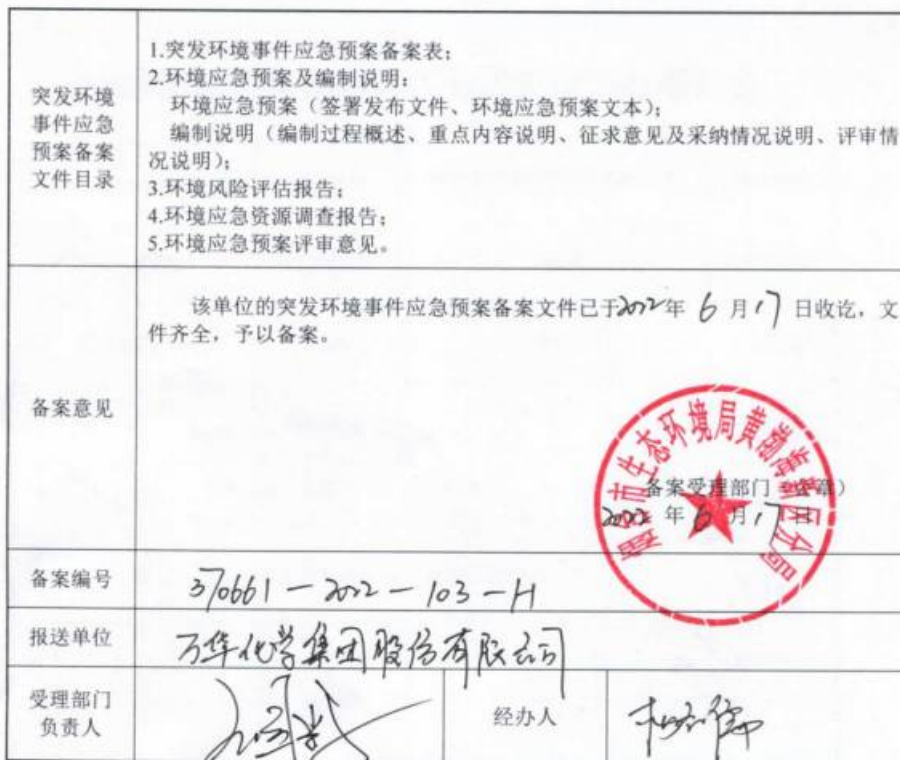 突发环境
事件应急
预案备案
文件目录
1.突发环境事件应急预案备案表;
2.环境应急预案及编制说明:
环境应急预案（签署发布文件、环境应急预案文本）;
编制说明（编制过程概述、重点内容说明、征求意见及采纳情况说明、评审情
况说明）;
3.环境风险评估报告;
4.环境应急资源调查报告;
5.环境应急预案评审意见。
备案意见
该单位的突发环境事件应急预案备案文件已于2022年 6 月17 日收讫，文
件齐全，予以备案。
烟台市生态环境局黄渤海新区分局
备案受理部门（公章）
2022 年 6 月 17 日
备案编号
370661-2022-103-H
报送单位
万华化学集团股份有限公司
受理部门
负责人
经办人